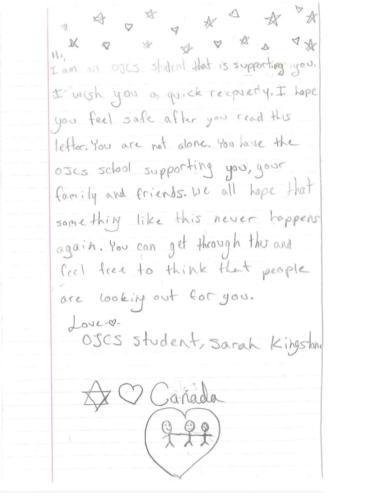 Hi,
I am an OJCS student that is supporting you.
I wish you a quick recovery. I hope
you feel safe after you read this
letter. You are not alone. You have the
OJCS school supporting you, your
family and friends. We all hope that
something like this never happens
again. You can get through this and
feel free to think that people
are looking out for you.
Love
OJCS student, Sarah
Canada